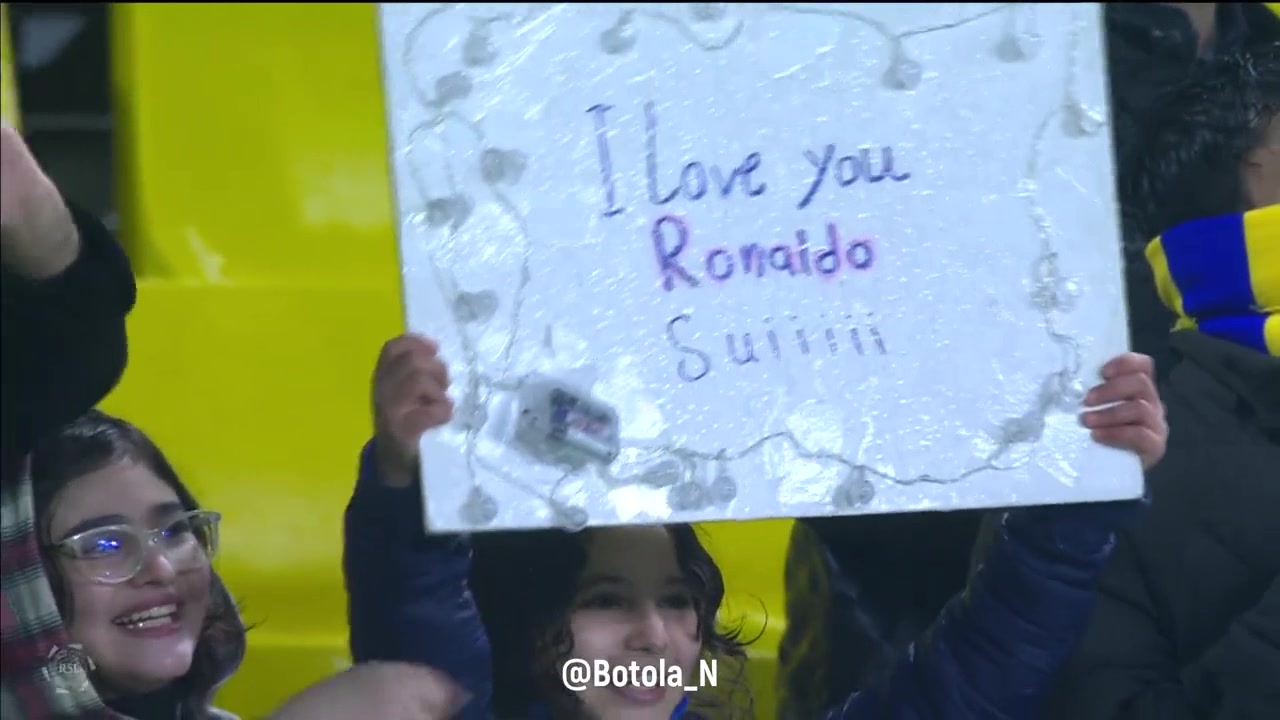 I Love you
Ronaldo
Suiiiiii
@Botola_N
RSL